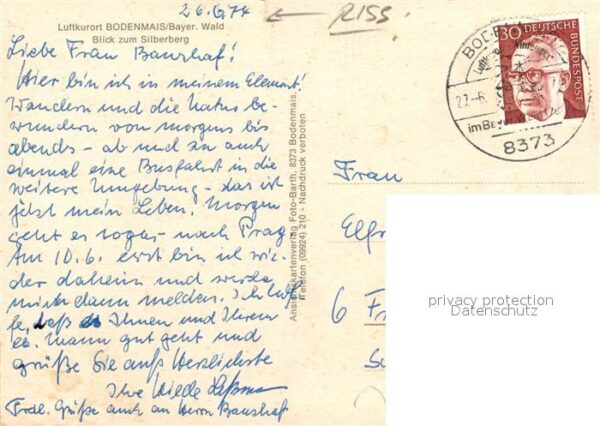 26.6.74 ← RISS.
Luftkurort BODENMAIS/Bayer. Wald
Blick zum Silberberg
Liebe Frau Banzhaf!
Hier bin ich in meinem Element!
Wandern und die Natur be-
wundern von morgens bis
abends - ab und zu auch
einmal eine Busfahrt in die
weitere Umgebung - das ist
jetzt mein Leben. Morgen
geht es sogar nach Prag.
Am 10.6. erst bin ich wie-
der daheim und werde
mich dann melden. Ich hof-
fe, daß es Ihnen und Ihrem
lb. Mann gut geht und
grüße Sie aufs Herzlichste
Ihre
Frdl. Grüße auch an Herrn Banzhaf
Ansichtskartenverlag Foto-Barth, 8373 Bodenmais,
Telefon (09924) 210 - Nachdruck verboten
30 DEUTSCHE
BUNDESPOST
BODENMAIS
27.-6.
im Bayer
8373
Frau
Elfr
6 F
privacy protection
Datenschutz